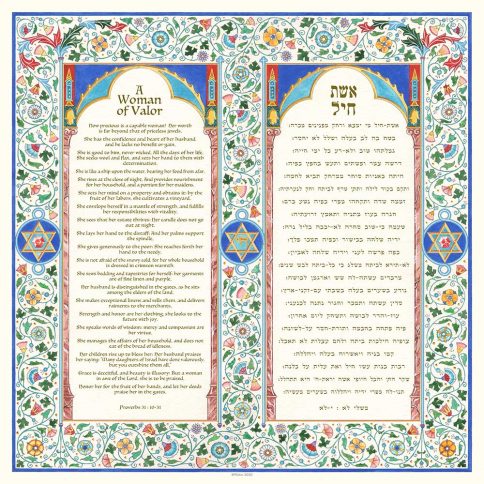 A
Woman
of Valor
How precious is a capable woman! Her worth
is far beyond that of priceless jewels.
She has the confidence and heart of her husband,
and he lacks no benefit or gain.
She is good to him, never wicked, All the days of her life.
She seeks wool and flax, and sets her hand to them with
determination.
She is like a ship upon the water, bearing her food from afar.
She rises at the close of night, And provides nourishment
for her household, and a portion for her maidens.
She sets her mind on a property and obtains it; by the
fruit of her labors, she cultivates a vineyard.
She envelops herself in a mantle of strength, and fulfills
her responsibilities with vitality.
She sees that her estate thrives; Her candle does not go
out at night.
She lays her hand to the distaff; And her palms support
the spindle.
She gives generously to the poor; She reaches forth her
hand to the needy.
She is not afraid of the snowy cold, for her whole household
is dressed in crimson warmth.
She sews bedding and tapestries for herself; her garments
are of fine linen and purple.
Her husband is distinguished in the gates, as he sits
among the elders of the land.
She makes exceptional linens and sells them, and delivers
raiments to the merchants.
Strength and honor are her clothing; she looks to the
future with joy.
She speaks words of wisdom; mercy and compassion are
her virtue.
She manages the affairs of her household, and does not
eat of the bread of idleness.
Her children rise up to bless her; Her husband praises
her saying: "Many daughters of Israel have done valorously,
but you outshine them all."
Grace is deceitful, and beauty is illusory; But a woman
in awe of the Lord, she is to be praised.
Honor her for the fruit of her hands, and let her deeds
praise her in the gates.
Proverbs 31 : 10-31
אשת
חיל
אשת־חיל מי ימצא ורחק מפנינים מכרה:
בטח בה לב בעלה ושלל לא יחסר:
גמלתהו טוב ולא־רע כל ימי חייה:
דרשה צמר ופשתים ותעש בחפץ כפיה:
היתה כאניות סוחר ממרחק תביא לחמה:
ותקם בעוד לילה ותתן טרף לביתה וחק לנערתיה:
זממה שדה ותקחהו מפרי כפיה נטעה כרם:
חגרה בעוז מתניה ותאמץ זרועתיה:
טעמה כי־טוב סחרה לא־יכבה בליל נרה:
ידיה שלחה בכישור וכפיה תמכו פלך:
כפה פרשה לעני וידיה שלחה לאביון:
לא־תירא לביתה משלג כי כל־ביתה לבש שנים:
מרבדים עשתה־לה שש וארגמן לבושה:
נודע בשערים בעלה בשבתו עם־זקני־ארץ:
סדין עשתה ותמכר וחגור נתנה לכנעני:
עוז־והדר לבושה ותשחק ליום אחרון:
פיה פתחה בחכמה ותורת־חסד על־לשונה:
צופיה הליכות ביתה ולחם עצלות לא תאכל:
קמו בניה ויאשרוה בעלה ויהללה:
רבות בנות עשו חיל ואת עלית על כלנה:
שקר החן והבל היופי אשה יראת־ה׳ היא תתהלל:
תנו־לה מפרי ידיה ויהללוה בשערים מעשיה:
משלי לא : י־לא